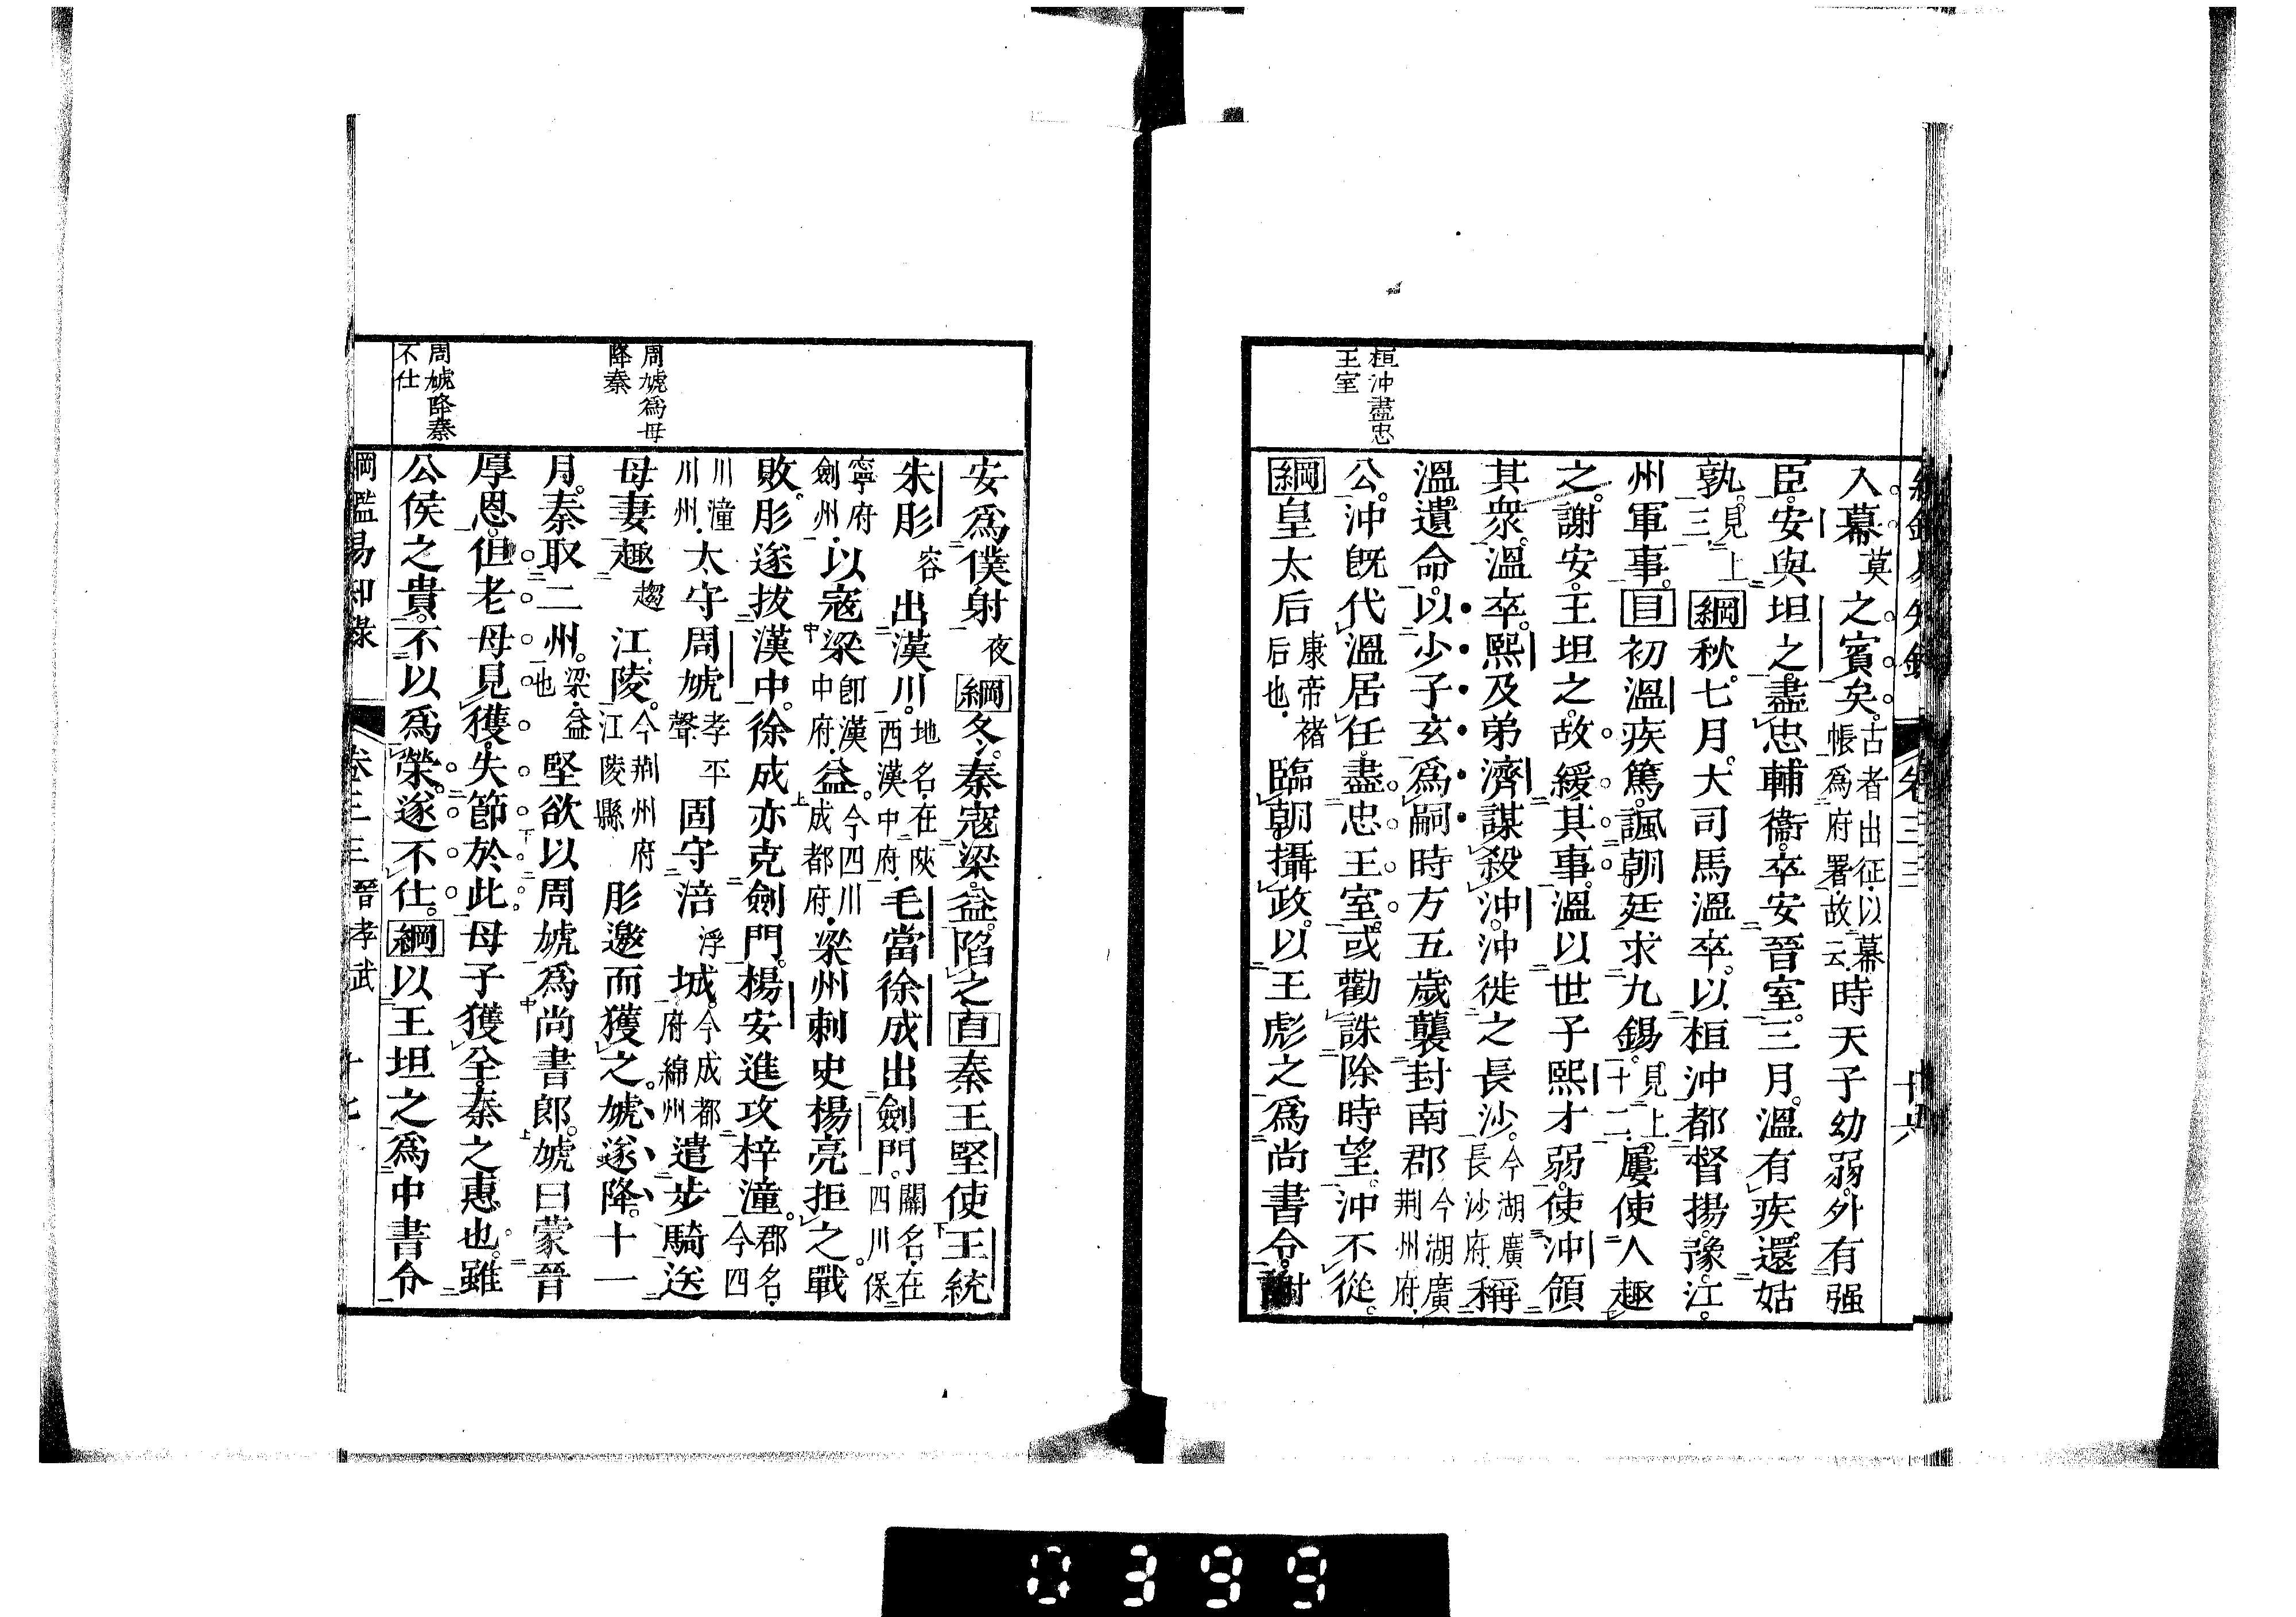 桓沖盡忠
王室
入幕莫之賓矣古者出征以幕帳爲府署故云時天子幼弱外有强
臣安與坦之盡忠輔衞卒安晉室三月溫有疾還姑
孰見上三綱秋七月大司馬溫卒以桓沖都督揚豫江
州軍事目初溫疾篤諷朝廷求九錫見上十二屢使人趣
之謝安王坦之故緩其事溫以世子熙才弱使沖領
其衆溫卒熙及弟濟謀殺沖沖徙之長沙今湖廣長沙府稱
溫遺命以少子玄爲嗣時方五歲襲封南郡今湖廣荆州府
公沖既代溫居任盡忠王室或勸誅除時望沖不從
綱皇太后康帝褚后也臨朝攝政以王彪之爲尚書令謝
周虓爲母
降秦
周虓降秦
不仕
安爲僕射夜綱冬秦寇梁益陷之目秦王堅使王統
朱肜容出漢川地名在陝西漢中府毛當徐成出劍門關名在四川保
寧府劍州以寇梁卽漢中府益今四川成都府梁州刺史楊亮拒之戰
敗肜遂拔漢中徐成亦克劍門楊安進攻梓潼郡名今四
川潼川州太守周虓孝平聲固守涪浮城今成都府綿州遣步騎送
母妻趣趨江陵今荆州府江陵縣肜邀而獲之虓遂降十一
月秦取二州梁益也堅欲以周虓爲尚書郎虓曰蒙晉
厚恩但老母見獲失節於此母子獲全秦之惠也雖
公侯之貴不以爲榮遂不仕綱以王坦之爲中書令
綱鑑易知錄 卷三三 晉孝武 十七
0399